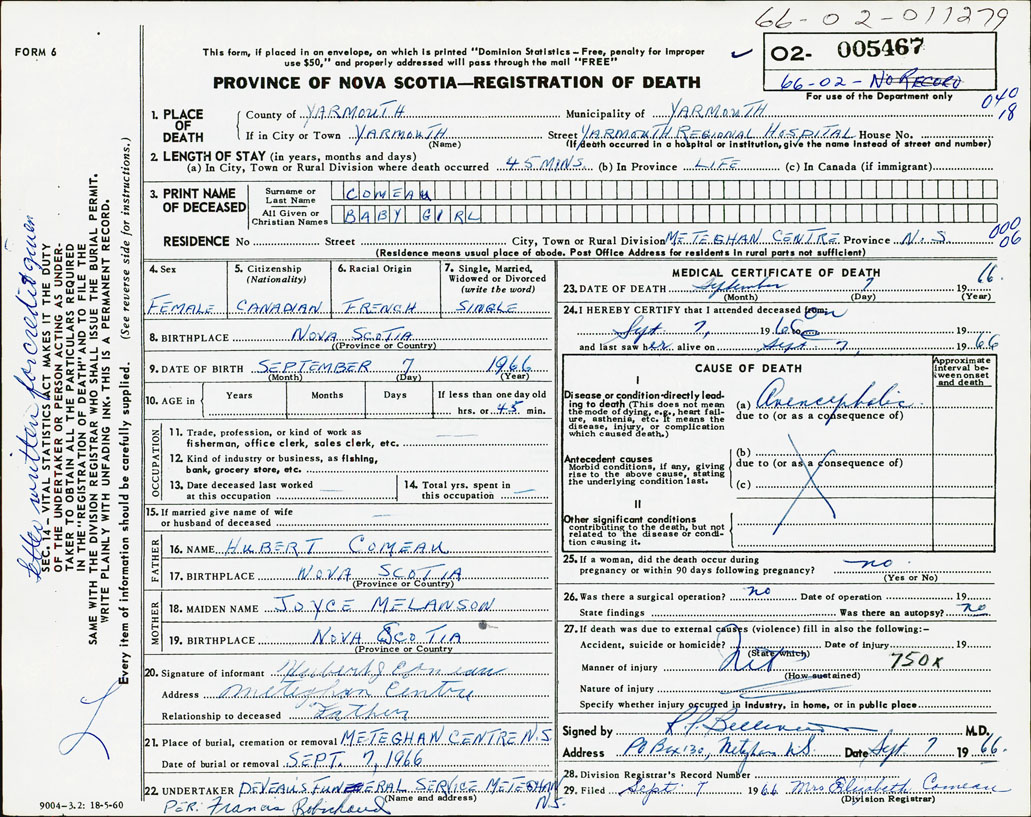 66-02-011279
FORM 6
This form, if placed in an envelope, on which is printed "Dominion Statistics – Free, penalty for improper
use $50," and properly addressed will pass through the mail "FREE"
02- 005467
66-02- NO RECORD
For use of the Department only
PROVINCE OF NOVA SCOTIA—REGISTRATION OF DEATH
040
18
1. PLACE OF DEATH
County of YARMOUTH Municipality of YARMOUTH
If in City or Town YARMOUTH Street YARMOUTH REGIONAL HOSPITAL House No.
(Name) (If death occurred in a hospital or institution, give the name instead of street and number)
2. LENGTH OF STAY (in years, months and days)
(a) In City, Town or Rural Division where death occurred 45 MINS. (b) In Province LIFE (c) In Canada (if immigrant)
3. PRINT NAME OF DECEASED
Surname or Last Name COMEAU
All Given or Christian Names BABY GIRL
RESIDENCE No Street City, Town or Rural Division METEGHAN CENTRE Province N.S.
000
06
(Residence means usual place of abode. Post Office Address for residents in rural parts not sufficient)
4. Sex
FEMALE
5. Citizenship
(Nationality)
CANADIAN
6. Racial Origin
FRENCH
7. Single, Married,
Widowed or Divorced
(write the word)
SINGLE
8. BIRTHPLACE NOVA SCOTIA
(Province or Country)
9. DATE OF BIRTH SEPTEMBER 7 1966
(Month) (Day) (Year)
10. AGE in
Years Months Days If less than one day old
hrs. or 45 min.
OCCUPATION
11. Trade, profession, or kind of work as
fisherman, office clerk, sales clerk, etc.
12. Kind of industry or business, as fishing,
bank, grocery store, etc.
13. Date deceased last worked
at this occupation
14. Total yrs. spent in
this occupation
15. If married give name of wife
or husband of deceased
FATHER
16. NAME HUBERT COMEAU
17. BIRTHPLACE NOVA SCOTIA
(Province or Country)
MOTHER
18. MAIDEN NAME JOYCE MELANSON
19. BIRTHPLACE NOVA SCOTIA
(Province or Country)
20. Signature of informant Hubert J Comeau
Address Meteghan Centre
Relationship to deceased Father
21. Place of burial, cremation or removal METEGHAN CENTRE N.S
Date of burial or removal SEPT. 7, 1966
22. UNDERTAKER DEVEAU'S FUNERAL SERVICE METEGHAN
(Name and address) N.S.
PER: Francis Robichaud
MEDICAL CERTIFICATE OF DEATH
23. DATE OF DEATH September 7 1966.
(Month) (Day) (Year)
24. I HEREBY CERTIFY that I attended deceased from: on
Sept 7, 1966 19
and last saw her alive on Sept 7, 1966
CAUSE OF DEATH
Approximate
interval be-
tween onset
and death
I
Disease or condition-directly lead-
ing to death (This does not mean
the mode of dying, e.g., heart fail-
ure, asthenia, etc. It means the
disease, injury, or complication
which caused death.)
(a) Anencephalic
due to (or as a consequence of)
Antecedent causes
Morbid conditions, if any, giving
rise to the above cause, stating
the underlying condition last.
(b)
due to (or as a consequence of)
(c)
II
Other significant conditions
contributing to the death, but not
related to the disease or condi-
tion causing it.
25. If a woman, did the death occur during
pregnancy or within 90 days following pregnancy? no
(Yes or No)
26. Was there a surgical operation? no Date of operation 19
State findings Was there an autopsy? no
27. If death was due to external causes (violence) fill in also the following:–
Accident, suicide or homicide? Date of injury 19
(State which)
Manner of injury 750x
(How sustained)
Nature of injury
Specify whether injury occurred in industry, in home, or in public place
Signed by M.D.
Address PO Box 130, Meteghan N.S. Date Sept 7 1966.
28. Division Registrar's Record Number
29. Filed Sept. 7 1966 Mrs Elizabeth Comeau
(Division Registrar)
9004–3.2: 18-5-60
letter written for credit given
SEC. 14 – VITAL STATISTICS ACT MAKES IT THE DUTY
OF THE UNDERTAKER OR PERSON ACTING AS UNDER-
TAKER TO OBTAIN ALL THE PARTICULARS REQUIRED
IN THE "REGISTRATION OF DEATH" AND TO FILE THE
SAME WITH THE DIVISION REGISTRAR WHO SHALL ISSUE THE BURIAL PERMIT.
WRITE PLAINLY WITH UNFADING INK. THIS IS A PERMANENT RECORD.
Every item of information should be carefully supplied. (See reverse side for instructions.)